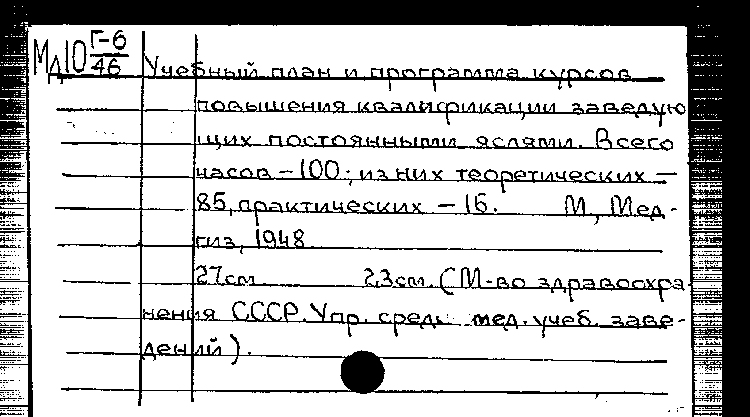 Мд10 Г-6/46 Учебный план и программа курсов
повышения квалификации заведую
щих постоянными яслями. Всего
часов – 100; из них теоретических –
85, практических – 16. М., Мед-
гиз, 1948
27см 23см. (М-во здравоохра
нения СССР. Упр. средн мед. учеб. заве-
дений).